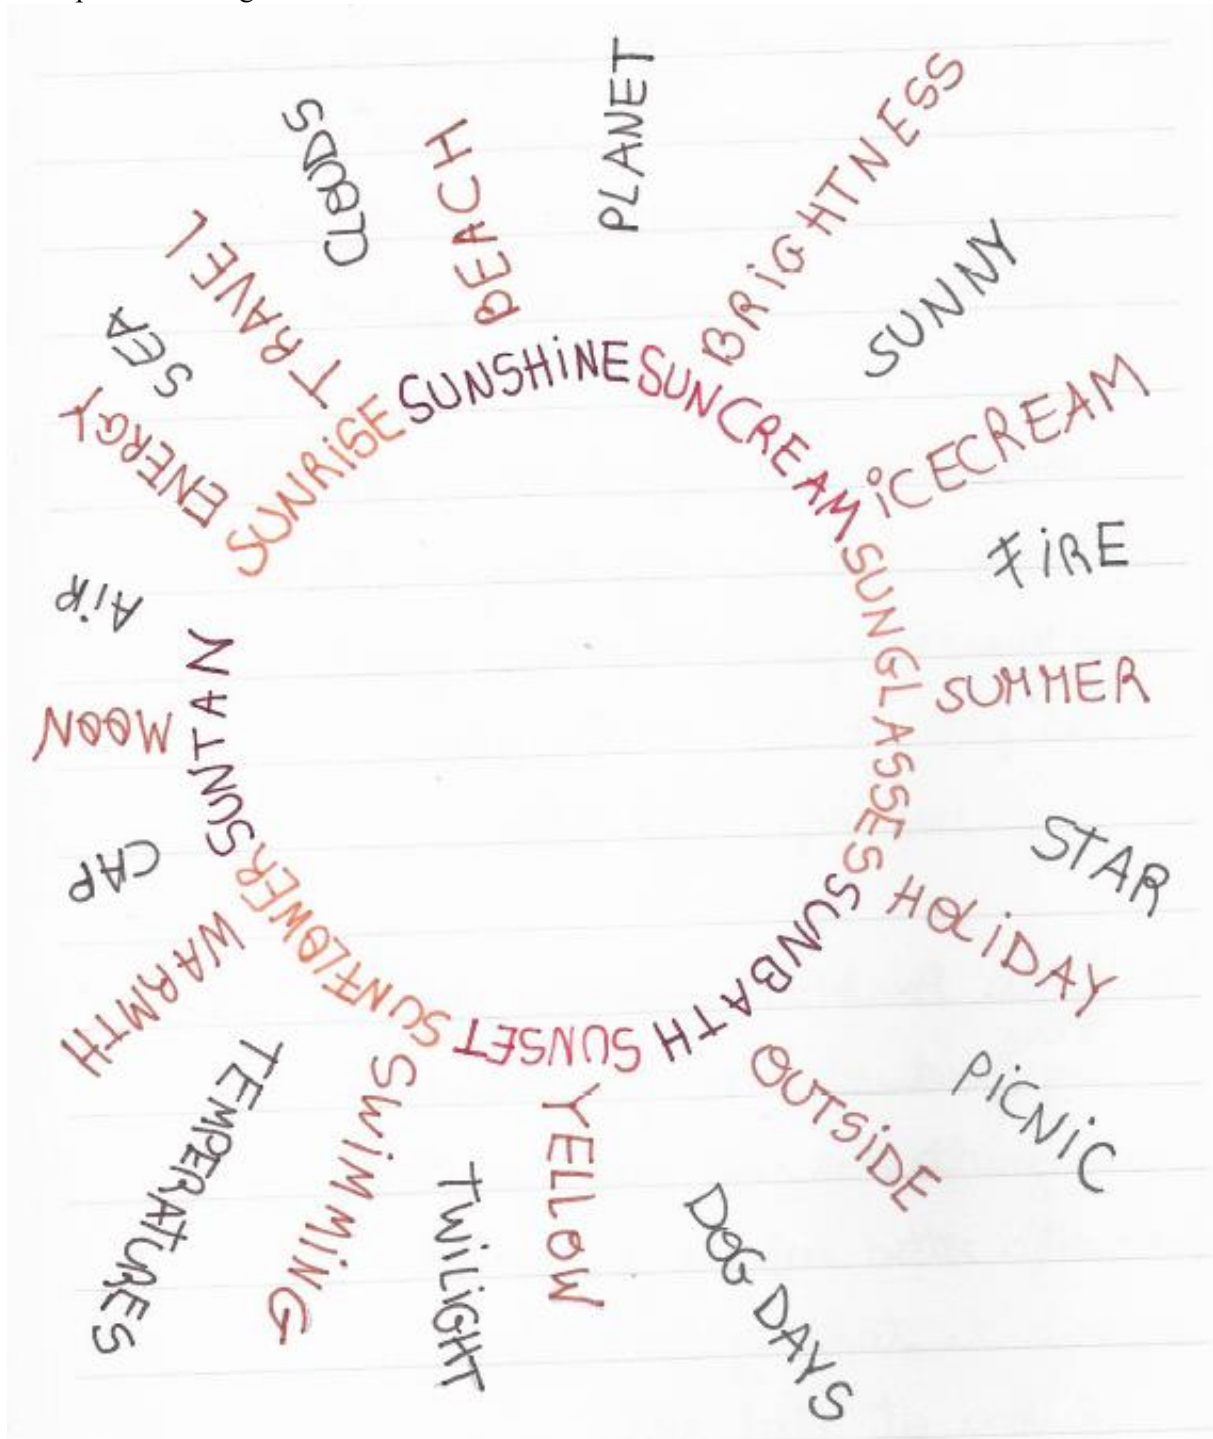 SUNSHINE
SUNCREAM
SUNGLASSES
SUNBATH
SUNSET
SUNFLOWER
SUNTAN
SUNRISE
PLANET
BRIGHTNESS
SUNNY
ICECREAM
FIRE
SUMMER
STAR
HOLIDAY
PICNIC
OUTSIDE
DOG DAYS
YELLOW
TWILIGHT
SWIMMING
TEMPERATURES
WARMTH
CAP
MOON
AIR
ENERGY
SEA
TRAVEL
CLOUDS
BEACH